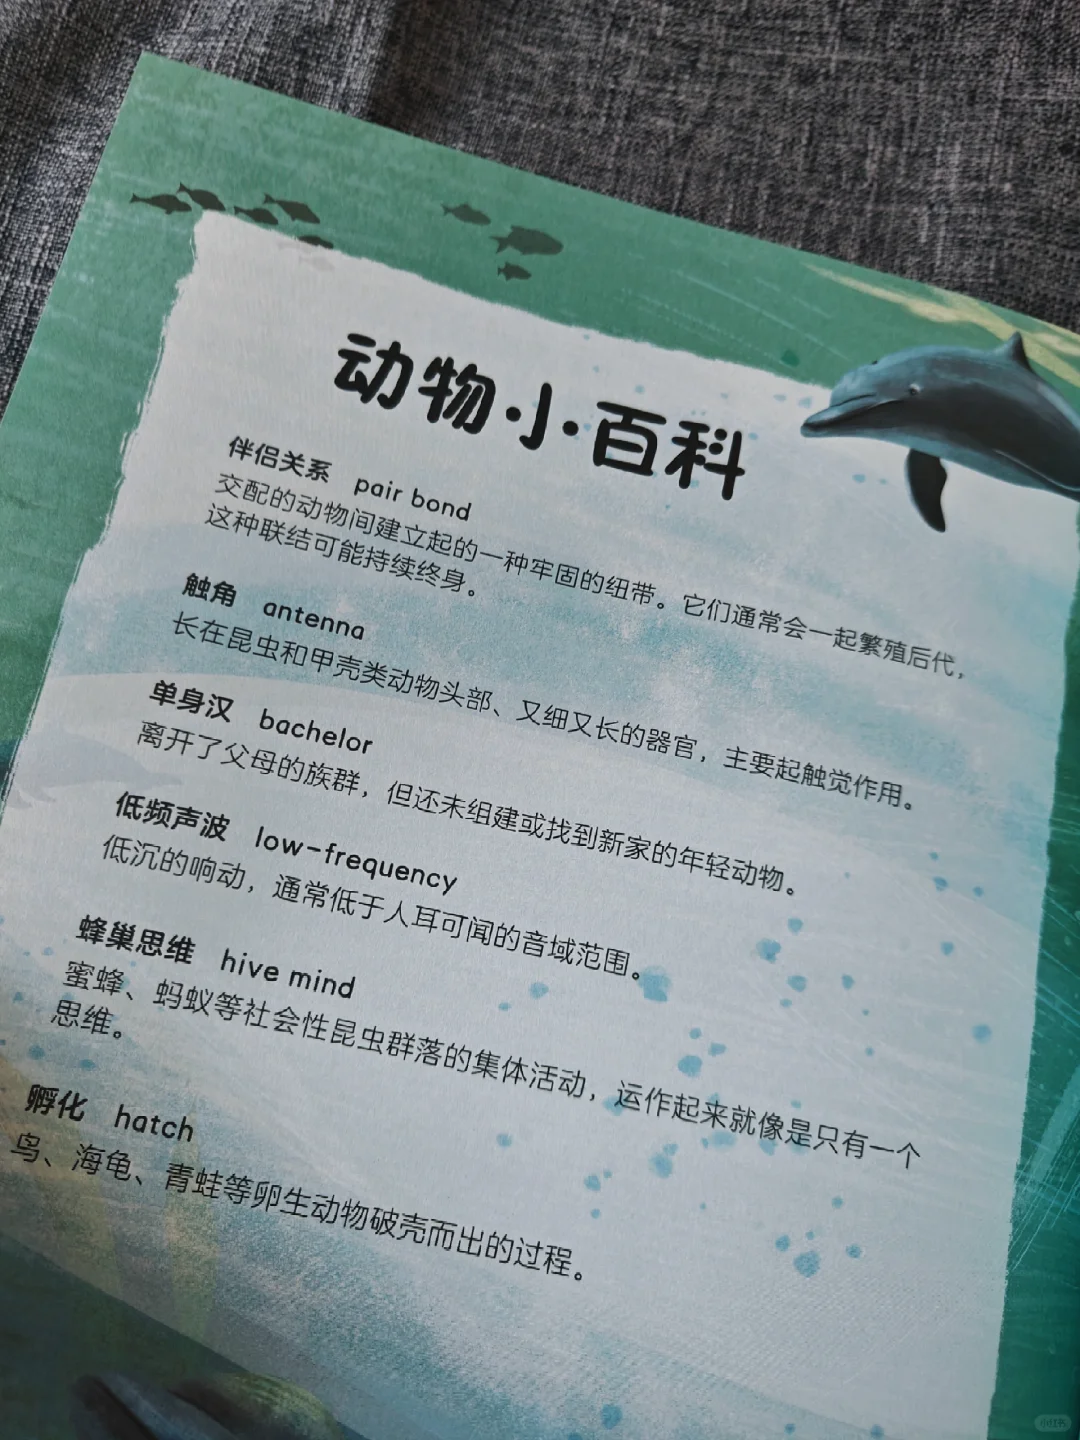 动物小百科
伴侣关系 pair bond
交配的动物间建立起的一种牢固的纽带。它们通常会一起繁殖后代，
这种联结可能持续终身。
触角 antenna
长在昆虫和甲壳类动物头部、又细又长的器官，主要起触觉作用。
单身汉 bachelor
离开了父母的族群，但还未组建或找到新家的年轻动物。
低频声波 low-frequency
低沉的响动，通常低于人耳可闻的音域范围。
蜂巢思维 hive mind
蜜蜂、蚂蚁等社会性昆虫群落的集体活动，运作起来就像是只有一个
思维。
孵化 hatch
鸟、海龟、青蛙等卵生动物破壳而出的过程。
小红书